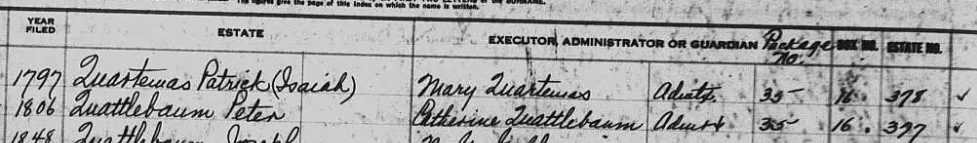 The figures give the page of this Index on which the name is written.
YEAR FILED ESTATE EXECUTOR, ADMINISTRATOR OR GUARDIAN Package No. BOX NO. ESTATE NO.
1797 Quartemas Patrick (Isaiah) Mary Quartemas Admtx 35 16 378 ✓
1806 Quattlebaum Peter Catherine Quattlebaum Admrx 35 16. 377 ✓
1848 Quattlebaum Joseph